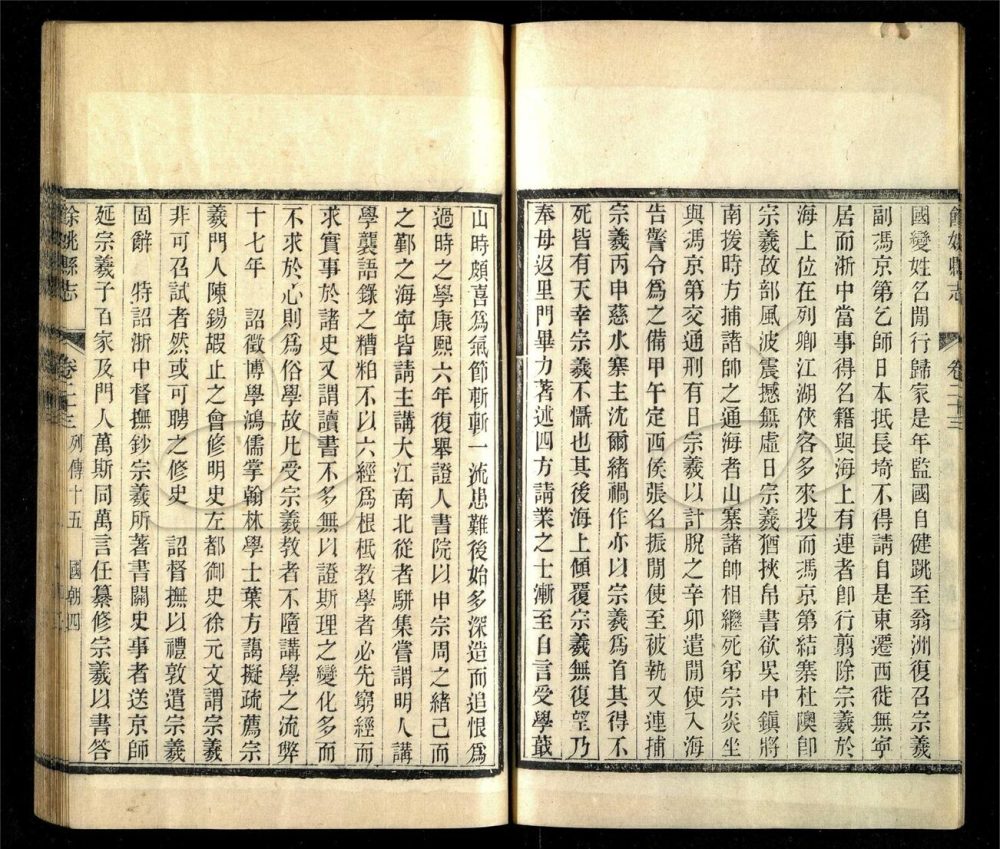 餘姚縣志 卷二十三
國變姓名閒行歸家是年監國自健跳至翁洲復召宗羲
副馮京第乞師日本抵長埼不得請自是東遷西徙無寧
居而浙中當事得名籍與海上有連者卽行翦除宗羲於
海上位在列卿江湖俠客多來投而馮京第結寨杜隩卽
宗羲故部風波震撼無虛日宗羲猶挾帛書欲吳中鎮將
南援時方捕諸帥之通海者山寨諸帥相繼死弟宗炎坐
與馮京第交通刑有日宗羲以計脫之辛卯遣閒使入海
告警令爲之備甲午定西侯張名振閒使至被執又連捕
宗羲丙申慈水寨主沈爾緒禍作亦以宗羲爲首其得不
死皆有天幸宗羲不懾也其後海上傾覆宗羲無復望乃
奉母返里門畢力著述四方請業之士漸至自言受學蕺
山時頗喜爲氣節斬斬一流患難後始多深造而追恨爲
過時之學康熙六年復舉證人書院以申宗周之緒已而
之鄞之海寧皆請主講大江南北從者駢集嘗謂明人講
學襲語錄之糟粕不以六經爲根柢教學者必先窮經而
求實事於諸史又謂讀書不多無以證斯理之變化多而
不求於心則爲俗學故凡受宗羲教者不墮講學之流弊
十七年 詔徵博學鴻儒掌翰林學士葉方藹擬疏薦宗
羲門人陳錫嘏止之會修明史左都御史徐元文謂宗羲
非可召試者然或可聘之修史 詔督撫以禮敦遣宗羲
固辭 特詔浙中督撫鈔宗羲所著書關史事者送京師
延宗羲子百家及門人萬斯同萬言任纂修宗羲以書答
餘姚縣志 卷二十三 列傳十五 國朝四